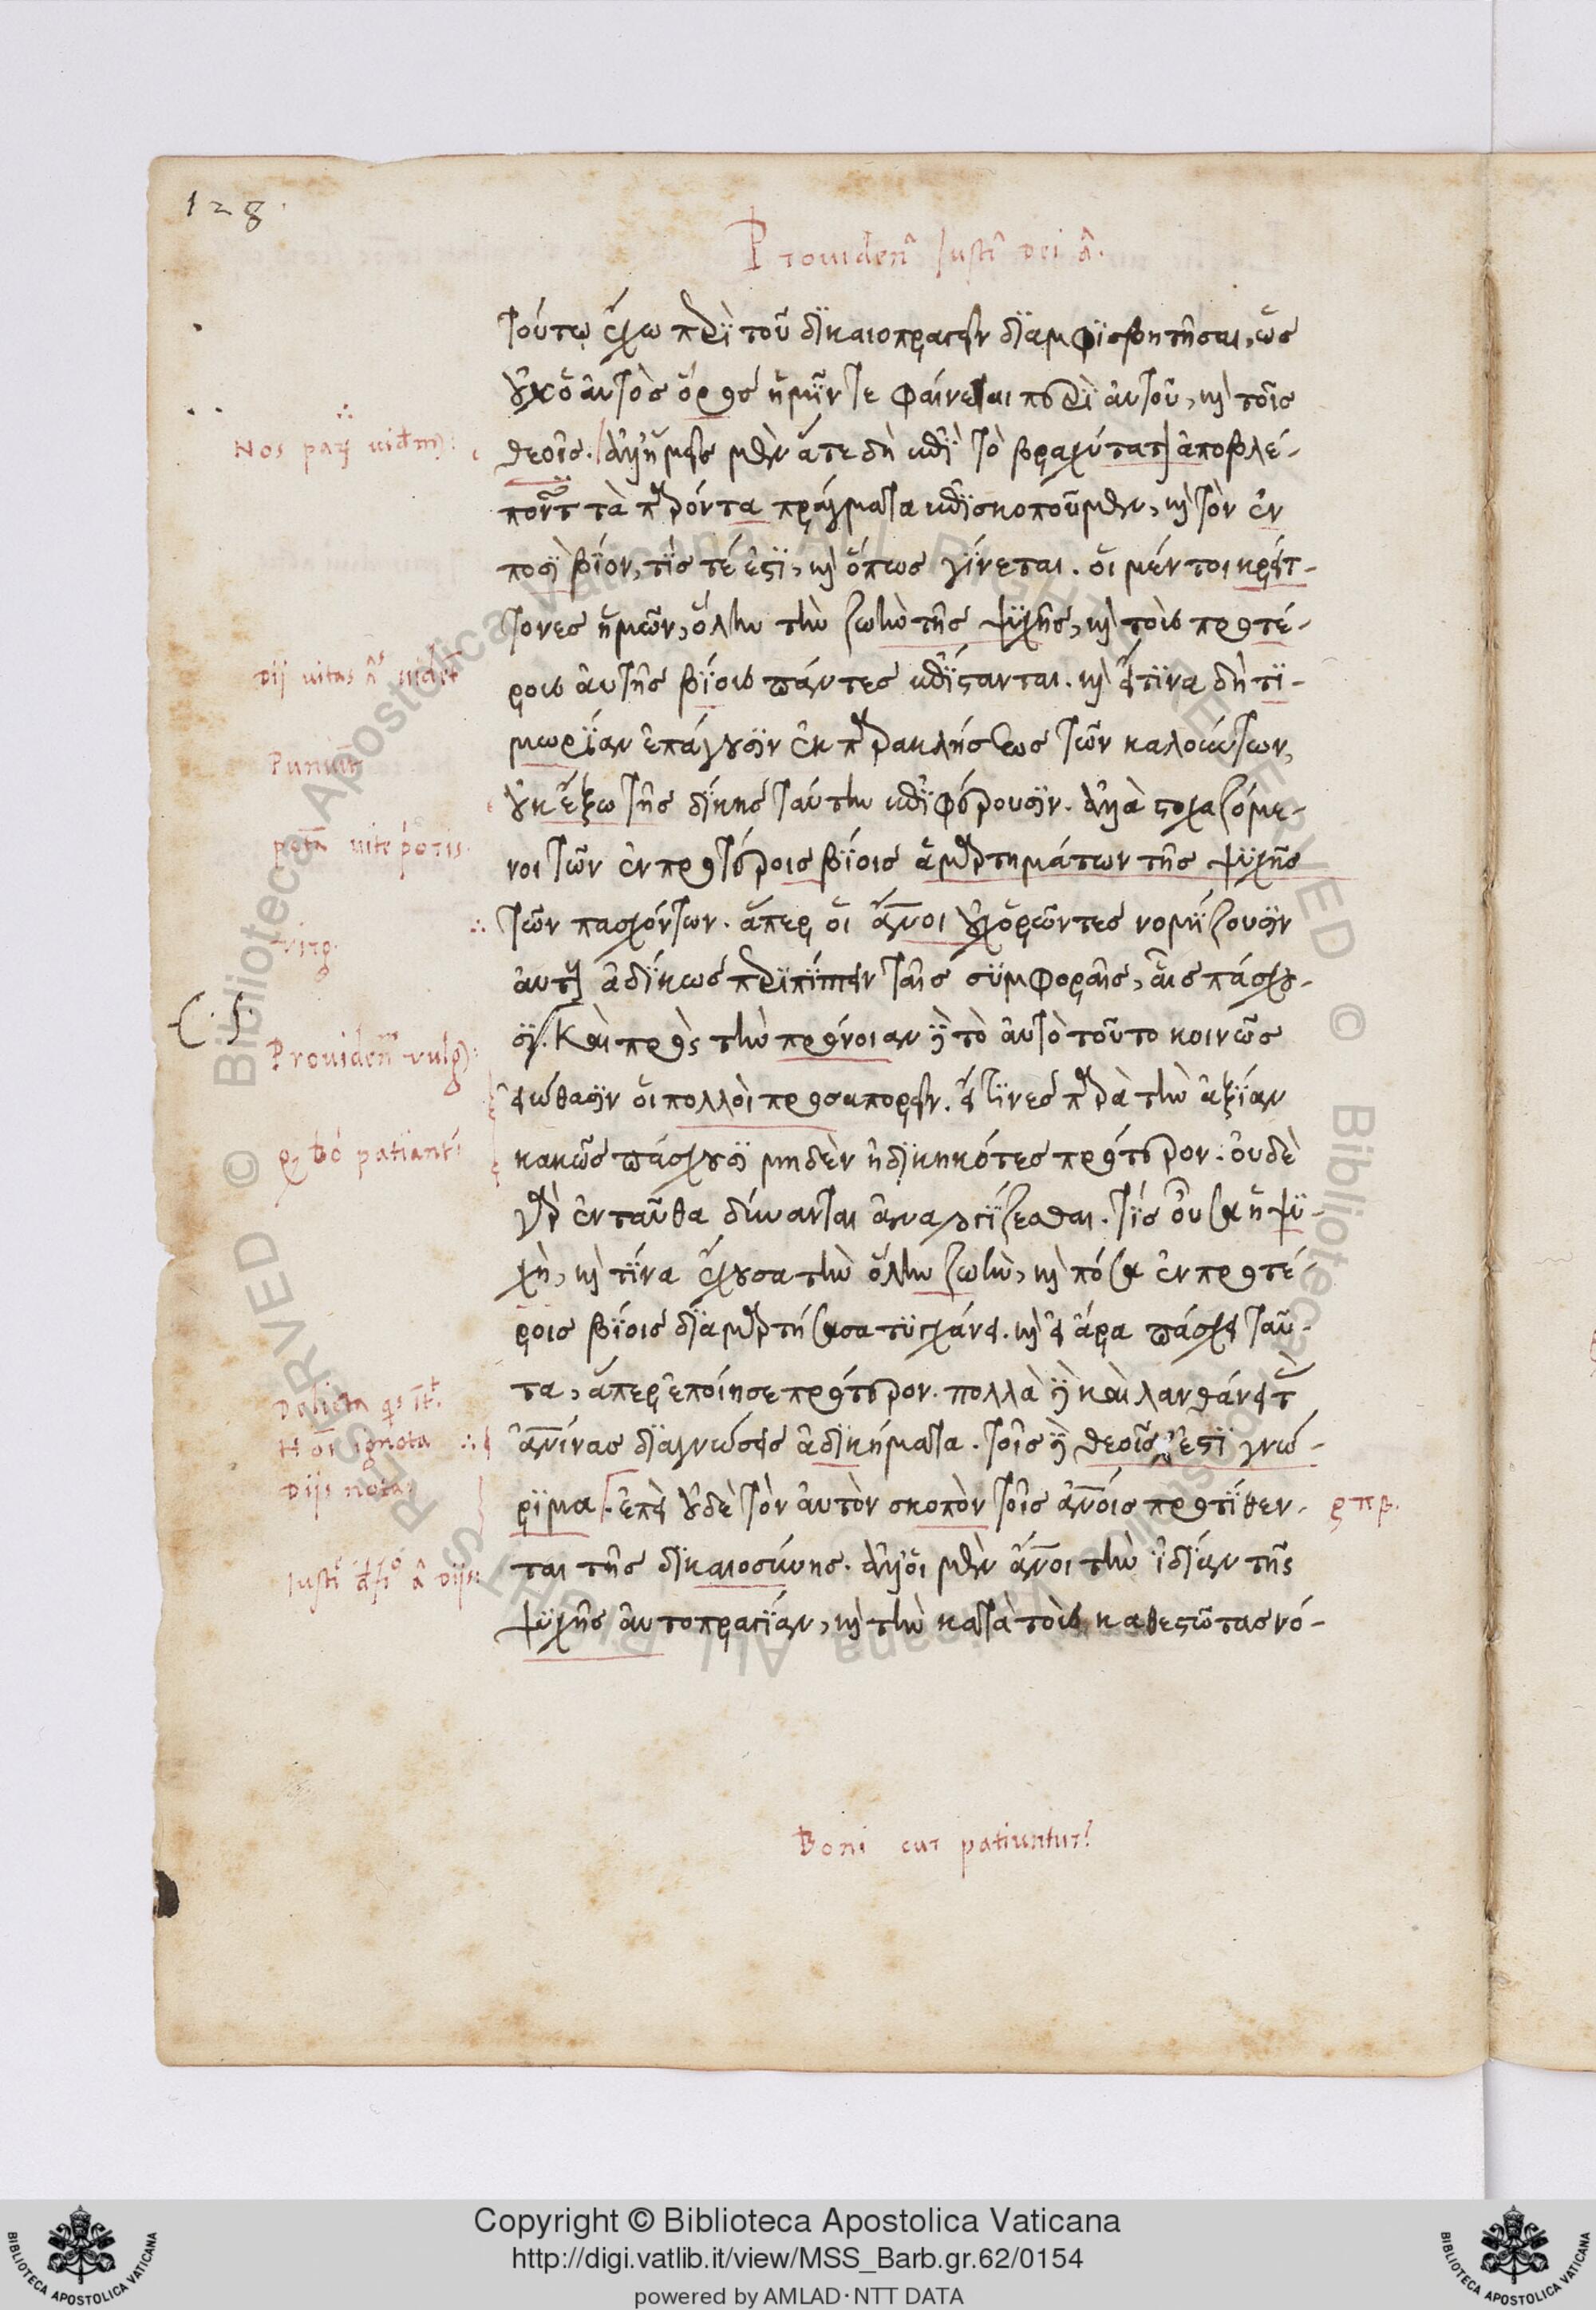 128.
Prouiden̄ Iusti Dei
τούτῳ ἔχω περὶ τοῦ δικαιοπραγεῖν διαμφισβητῆσαι, ὡς
οὐχ ὁ αὐτὸς ὅρος ἡμῖν τε φαίνεται περὶ αὐτοῦ, καὶ τοῖς
θεοῖς. ἀλλ' ἡμεῖς μὲν ἅτε δὴ ἐπὶ τὸ βραχύτατον ἀποβλέ-
ποντες τὰ παρόντα πράγματα ἐπισκοποῦμεν, καὶ τὸν ἐν
ποσὶ βίον, τίς τέ ἐστι, καὶ ὅπως γίνεται. οἱ μέντοι κρείτ-
τονες ἡμῶν, ὅλην τὴν ζωὴν τῆς ψυχῆς, καὶ τοὺς προτέ-
ρους αὐτῆς βίους πάντες ἐπίστανται. καὶ εἴ τινα δὴ τι-
μωρίαν ἐπάγουσιν ἐκ παρακλήσεως τῶν καλούντων,
οὐκ ἔξω τῆς δίκης ταύτην ἐπιφέρουσιν. ἀλλὰ στοχαζόμε-
νοι τῶν ἐν προτέροις βίοις ἁμαρτημάτων τῆς ψυχῆς
τῶν πασχόντων. ἅπερ οἱ ἄνοι οὐχ ὁρῶντες νομίζουσιν
αὐτοὺς ἀδίκως περιπίπτειν ταῖς συμφοραῖς, αἷς πάσχου-
σι. Καὶ πρὸς τὴν πρόνοιαν δὲ τὸ αὐτὸ τοῦτο κοινῶς
εἰώθασιν οἱ πολλοὶ προσαπορεῖν. εἴ τινες παρὰ τὴν ἀξίαν
κακῶς πάσχουσι μηδὲν ἠδικηκότες πρότερον. οὐδὲ
γὰρ ἐνταῦθα δύνανται ἀναλογίζεσθαι. τίς οὖσα ἡ ψυ-
χὴ, καὶ τίνα ἔχουσα τὴν ὅλην ζωὴν, καὶ πόσα ἐν προτέ-
ροις βίοις διαμαρτήσασα τυγχάνει. καὶ εἰ ἄρα πάσχει ταῦ-
τα, ἅπερ ἐποίησε πρότερον. πολλὰ δὲ καὶ λανθάνει τὰς
ἀνίνας διαγνώσεις ἀδικήματα. τοῖς δὲ θεοῖς ἐστι γνώ-
ριμα. ἐπεὶ οὐδὲ τὸν αὐτὸν σκοπὸν τοῖς ἀνοις προτίθεν-
ται τῆς δικαιοσύνης. ἀλλ' οἱ μὲν ἄνοι τὴν ἰδίαν τῆς
ψυχῆς αὐτοπραγίαν, καὶ τὴν κατὰ τοὺς καθεστῶτας νό-
Prouiden̄ vulg
patiant
ignota
Diis nota
Boni cur patiuntur?
Copyright © Biblioteca Apostolica Vaticana
http://digi.vatlib.it/view/MSS_Barb.gr.62/0154
powered by AMLAD·NTT DATA